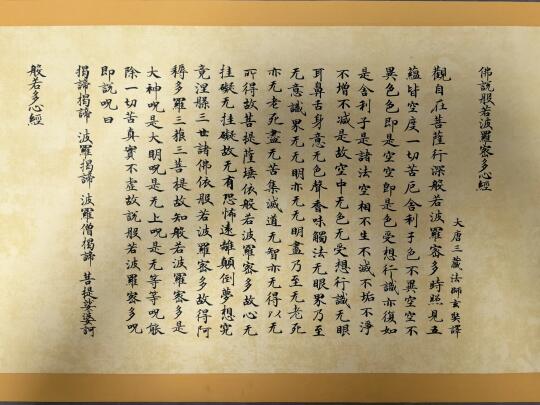 佛說般若波羅蜜多心經
大唐三藏法師玄奘譯
觀自在菩薩行深般若波羅蜜多時照見五
蘊皆空度一切苦厄舍利子色不異空空不
異色色即是空空即是色受想行識亦復如
是舍利子是諸法空相不生不滅不垢不淨
不增不減是故空中无色无受想行識无眼
耳鼻舌身意无色聲香味觸法无眼界乃至
无意識界无无明亦无无明盡乃至无老死
亦无老死盡无苦集滅道无智亦无得以无
所得故菩提薩埵依般若波羅蜜多故心无
挂礙无挂礙故无有恐怖遠離顛倒夢想究
竟涅槃三世諸佛依般若波羅蜜多故得阿
耨多羅三藐三菩提故知般若波羅蜜多是
大神呪是大明呪是无上呪是无等等呪能
除一切苦真實不虛故說般若波羅蜜多呪
即說呪曰
揭諦揭諦 波羅揭諦 波羅僧揭諦 菩提娑婆訶
般若多心經